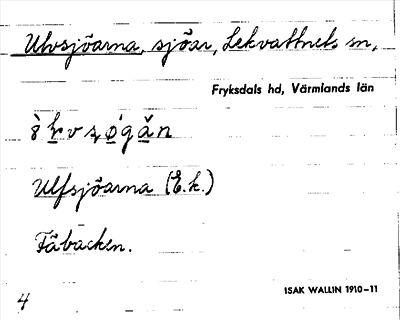 Ulvsjöarna, sjöar, Lekvattnets sn,
Fryksdals hd, Värmlands län
Ulfsjöarna (E.k.)
Fäbacken.
ISAK WALLIN 1910-11
4